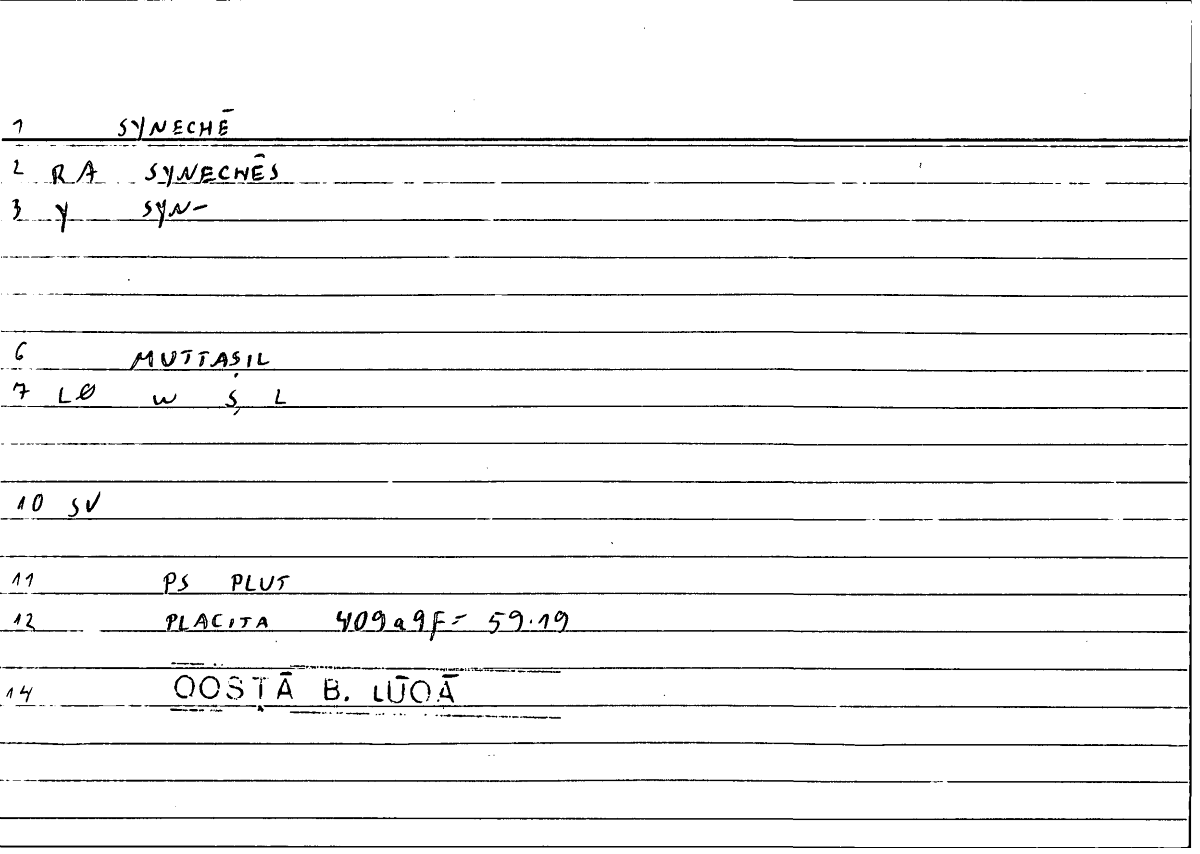 1 SYNECHĒ
2 RA SYNECHĒS
3 Y SYN-
6 MUTTAṢIL
7 LØ W Ṣ L
10 SV
11 PS PLUT
12 PLACITA 409a9F= 59.19
14 QOSṬĀ B. LŪQĀ